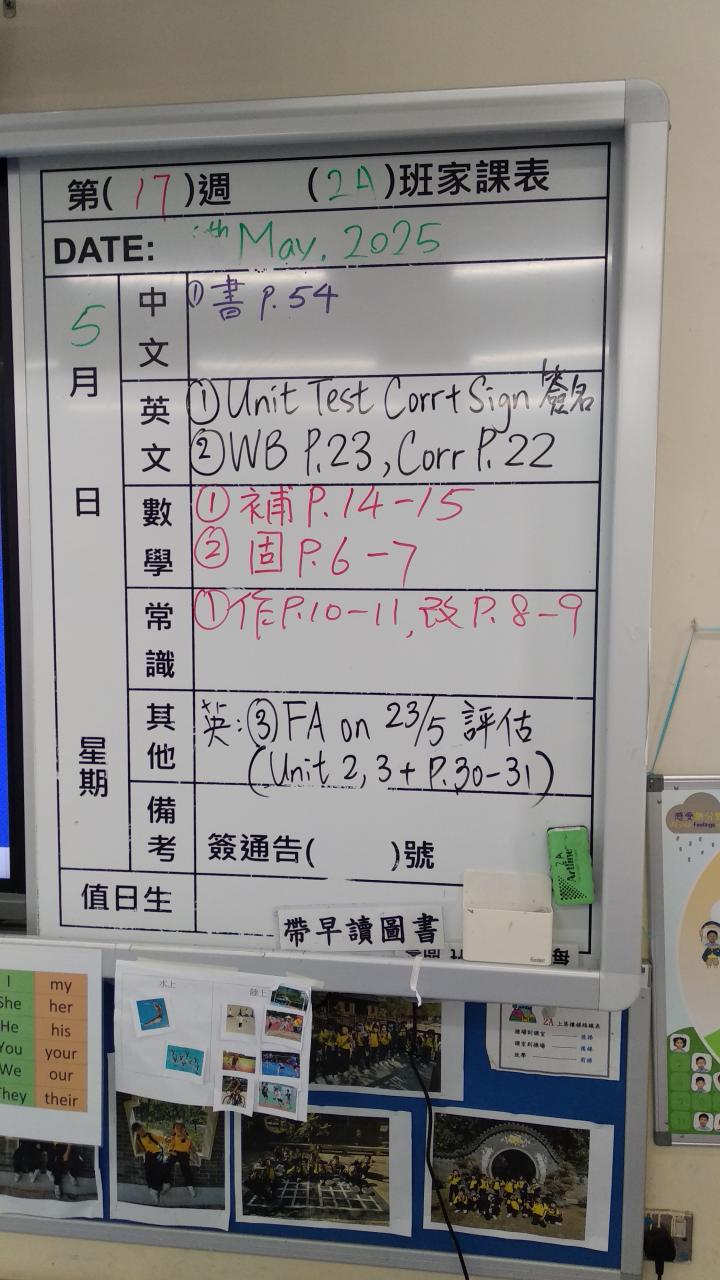 第( 17 )週 (2A)班家課表
DATE: th May. 2025
5
月
日
星期
中文
①書 P.54
英文
①Unit Test Corr+ Sign 簽名
②WB P.23, Corr P.22
數學
① 補 P.14-15
② 固 P.6-7
常識
①作P.10-11, 改 P.8-9
其他
英:③FA on 23/5 評估
(Unit 2, 3 + P.30-31)
備考
簽通告( )號
值日生
帶早讀圖書
2A
Artline
I my
She her
He his
You your
We our
They their
水上
陸上
2A 上落樓梯路線表
感受
Feelings